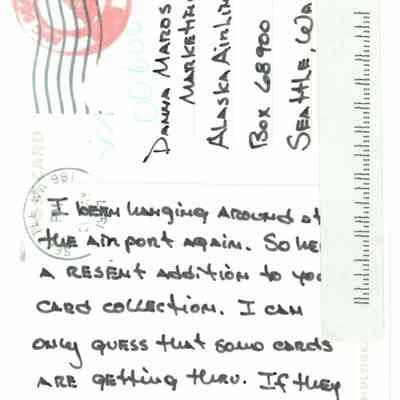 Danna Maros
Marketin
Alaska Airlin
Box 68900
Seattle, Wa
CARD
981
I been hanging around at
the airport again. So he
a resent addition to you
card collection. I can
only guess that somo cards
are getting thru. If they